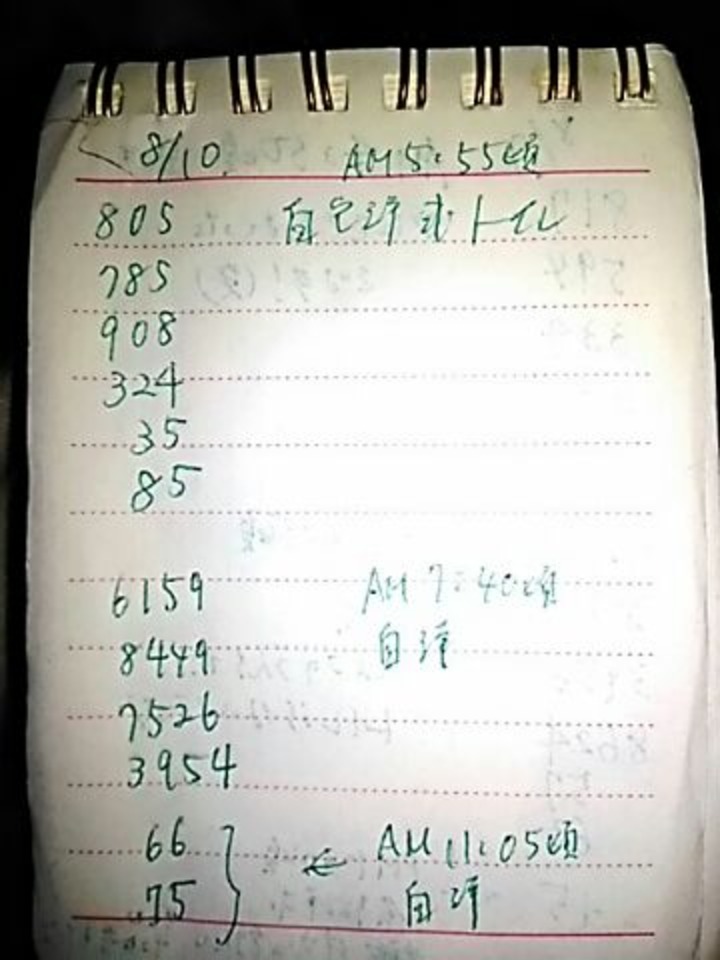 8/10 AM5:55頃
805 自宅洋式トイレ
785
908
324
35
85
6159 AM 7:40頃
8449 自洋
7526
3954
66 ← AM 11:05頃
75 自洋